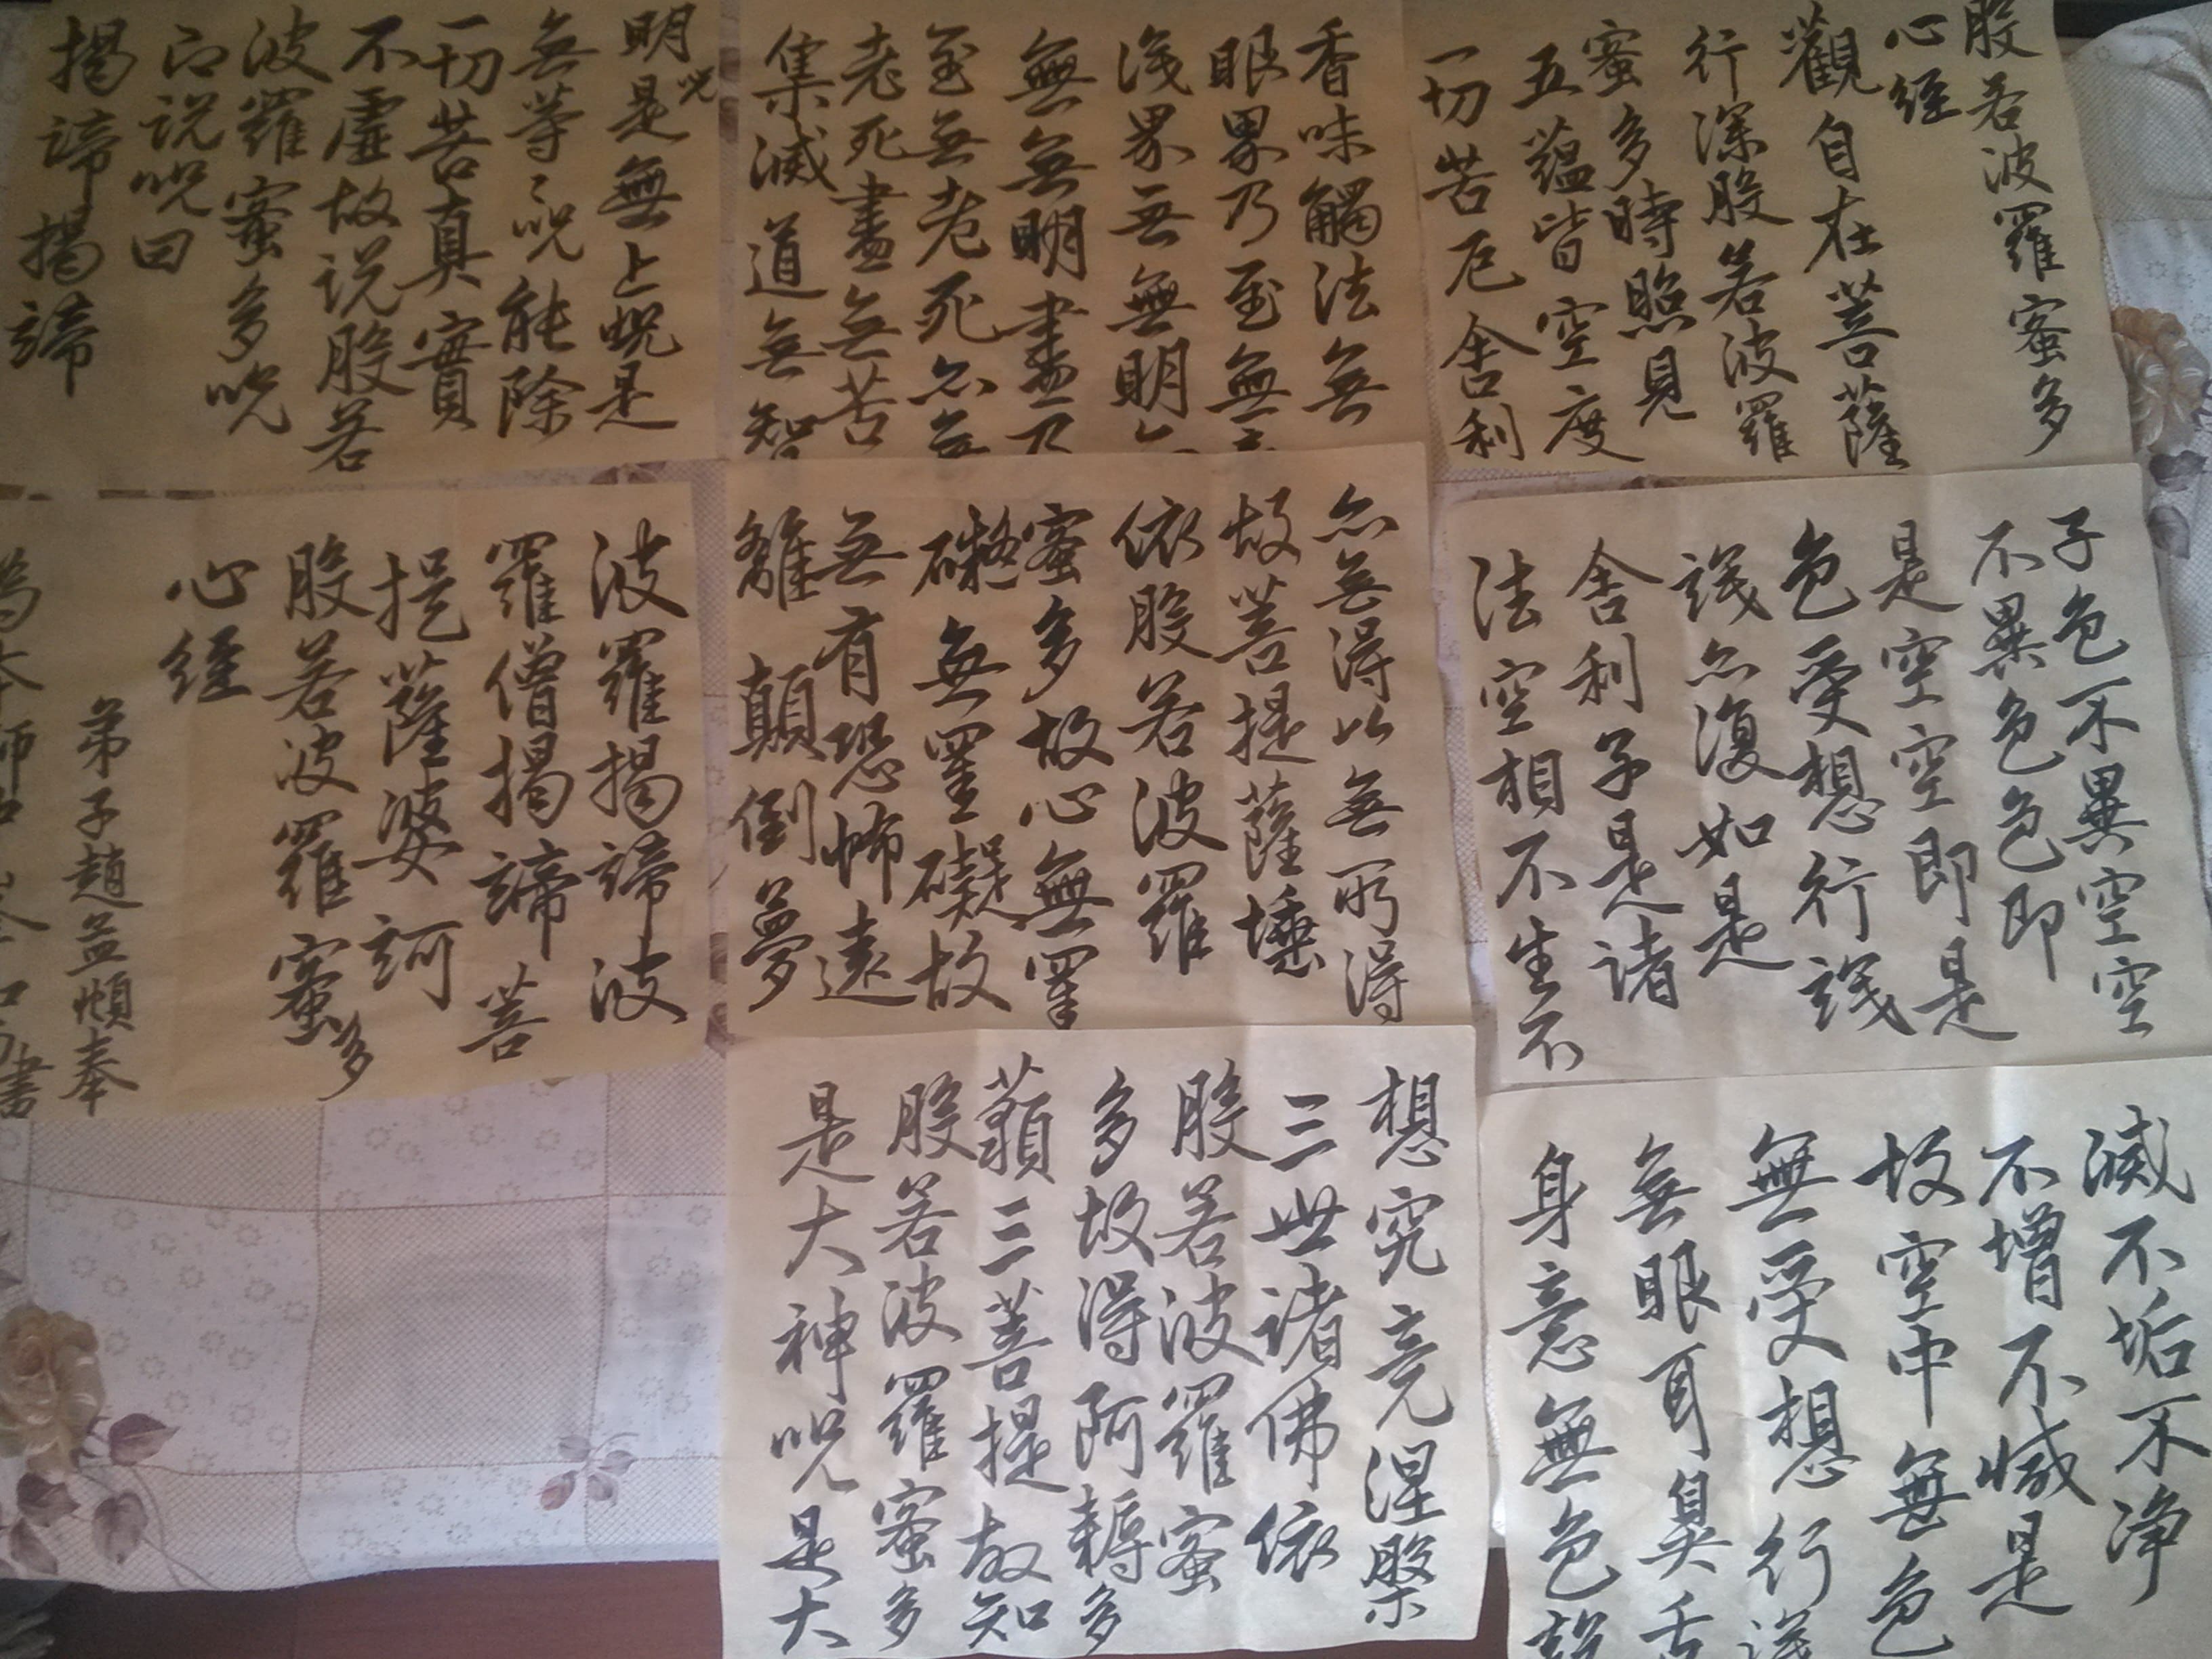 般若波羅蜜多
心經
觀自在菩薩
行深般若波羅
蜜多時照見
五蘊皆空度
一切苦厄舍利
子色不異空空
不異色色即
是空空即是
色受想行識
識亦復如是
舍利子是諸
法空相不生不
滅不垢不净
不增不减是
故空中無色
無受想行識
無眼耳鼻舌
身意無色聲
香味觸法無
眼界乃至無意
識界無無明亦
無無明盡乃
至無老死亦無
老死盡無苦
集滅道無智
亦無得以無所得
故菩提薩埵
依般若波羅
蜜多故心無罣
礙無罣礙故
無有恐怖遠
離顛倒夢
想究竟涅槃
三世諸佛依
般若波羅蜜
多故得阿耨多
藐三菩提故知
般若波羅蜜多
是大神呪是大
明呪是無上呪是
無等等呪能除
一切苦真實
不虛故说般若
波羅蜜多呪
即说呪曰
揭諦揭諦
波羅揭諦波
羅僧揭諦菩
提薩婆訶
般若波羅蜜多
心經
弟子趙孟頫奉
為本師
書